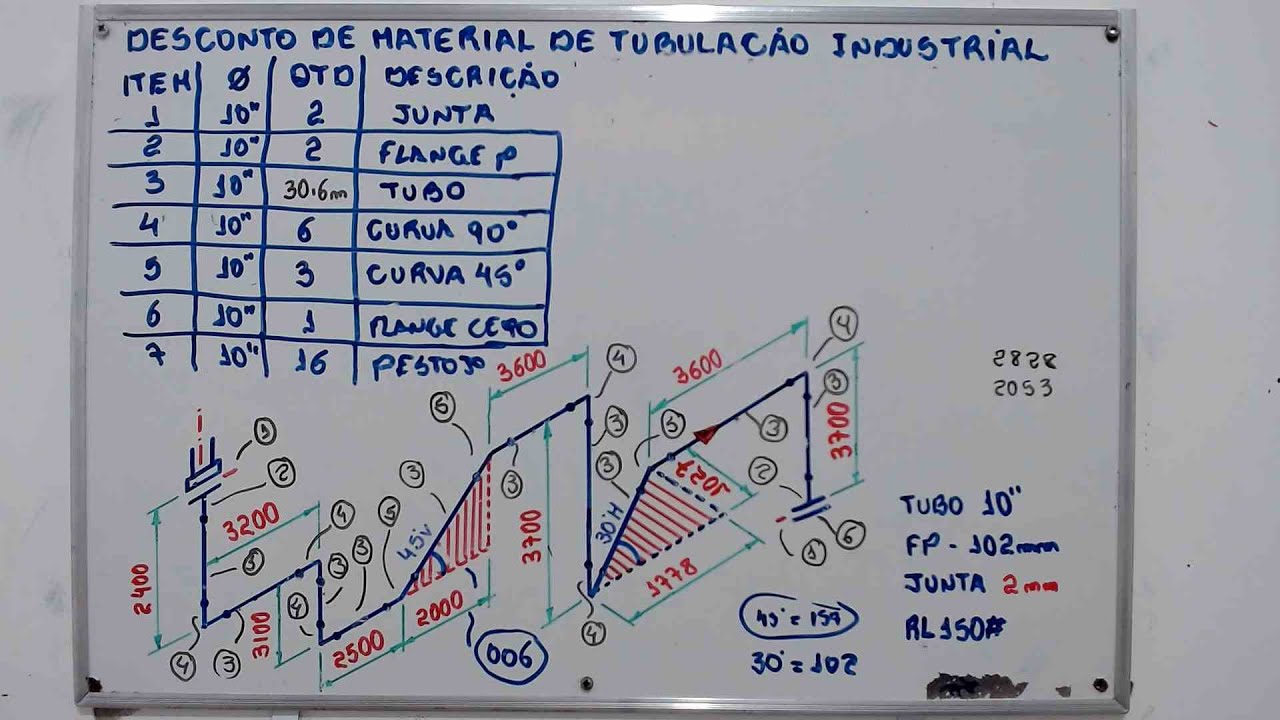 DESCONTO DE MATERIAL DE TUBULAÇÃO INDUSTRIAL
ITEM Ø QTD DESCRIÇÃO
1 10" 2 JUNTA
2 10" 2 FLANGE P
3 10" 30.6m TUBO
4 10" 6 CURVA 90°
5 10" 3 CURVA 45°
6 10" 1 FLANGE CEGO
7 10" 16 PESTOJO
3600
4
3600
4
2828
2053
5
3
3
3
5
3
3700
1
2
3
3
3200
4
5
45°V
3700
30°H
1027
2
TUBO 10"
2400
3
3
3
1
6
FP - 102mm
4
1778
JUNTA 2mm
3100
2000
4
45° = 159
RL150#
4
3
2500
006
30° = 102